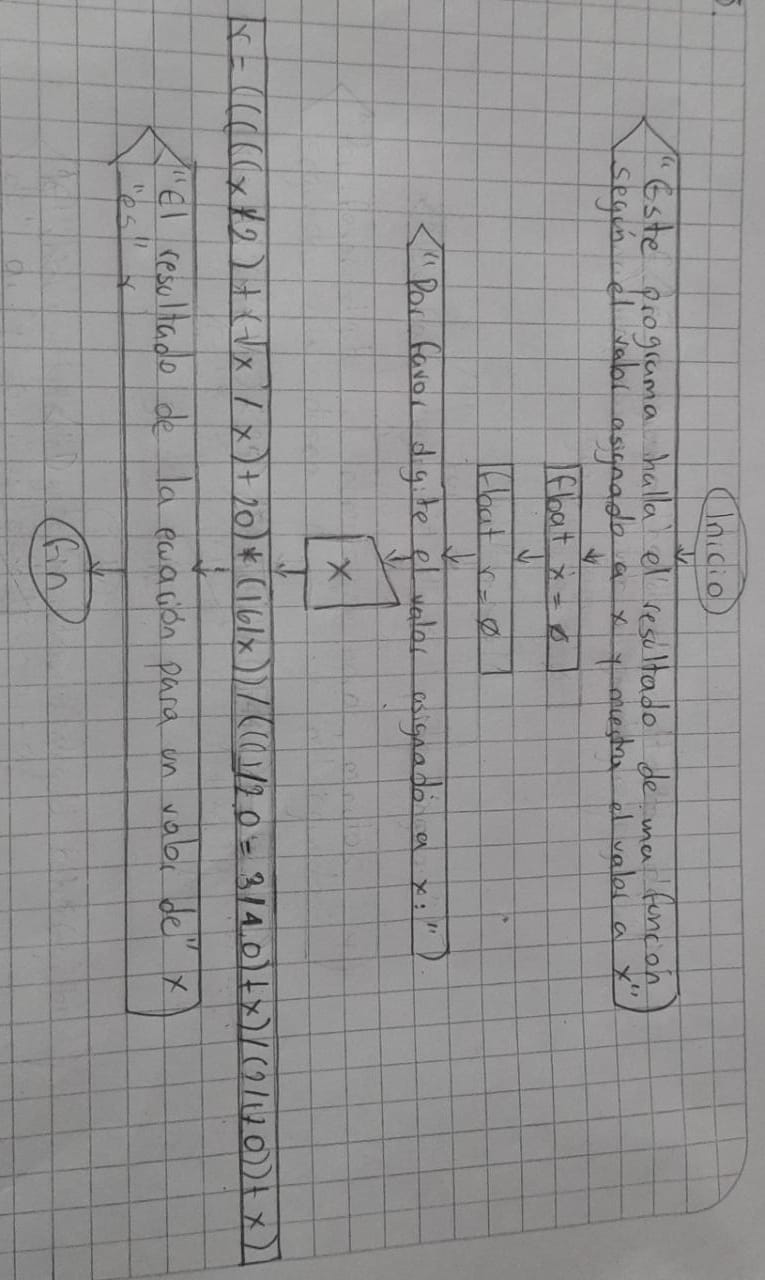 5.
Inicio
"Este programa halla el resultado de una funcion
según el valor asignado a x y muestra el valor a x"
float x = ø
float r = ø
"Por favor digite el valor asignado a x:"
x
r = (((((x*2) + (√x / x) + 20) * (16/x)) / (((1/2.0 = 3/4.0) + x) / (2/(1.0)) + x)
"El resultado de la ecuación para un valor de" x
"es" r
fin